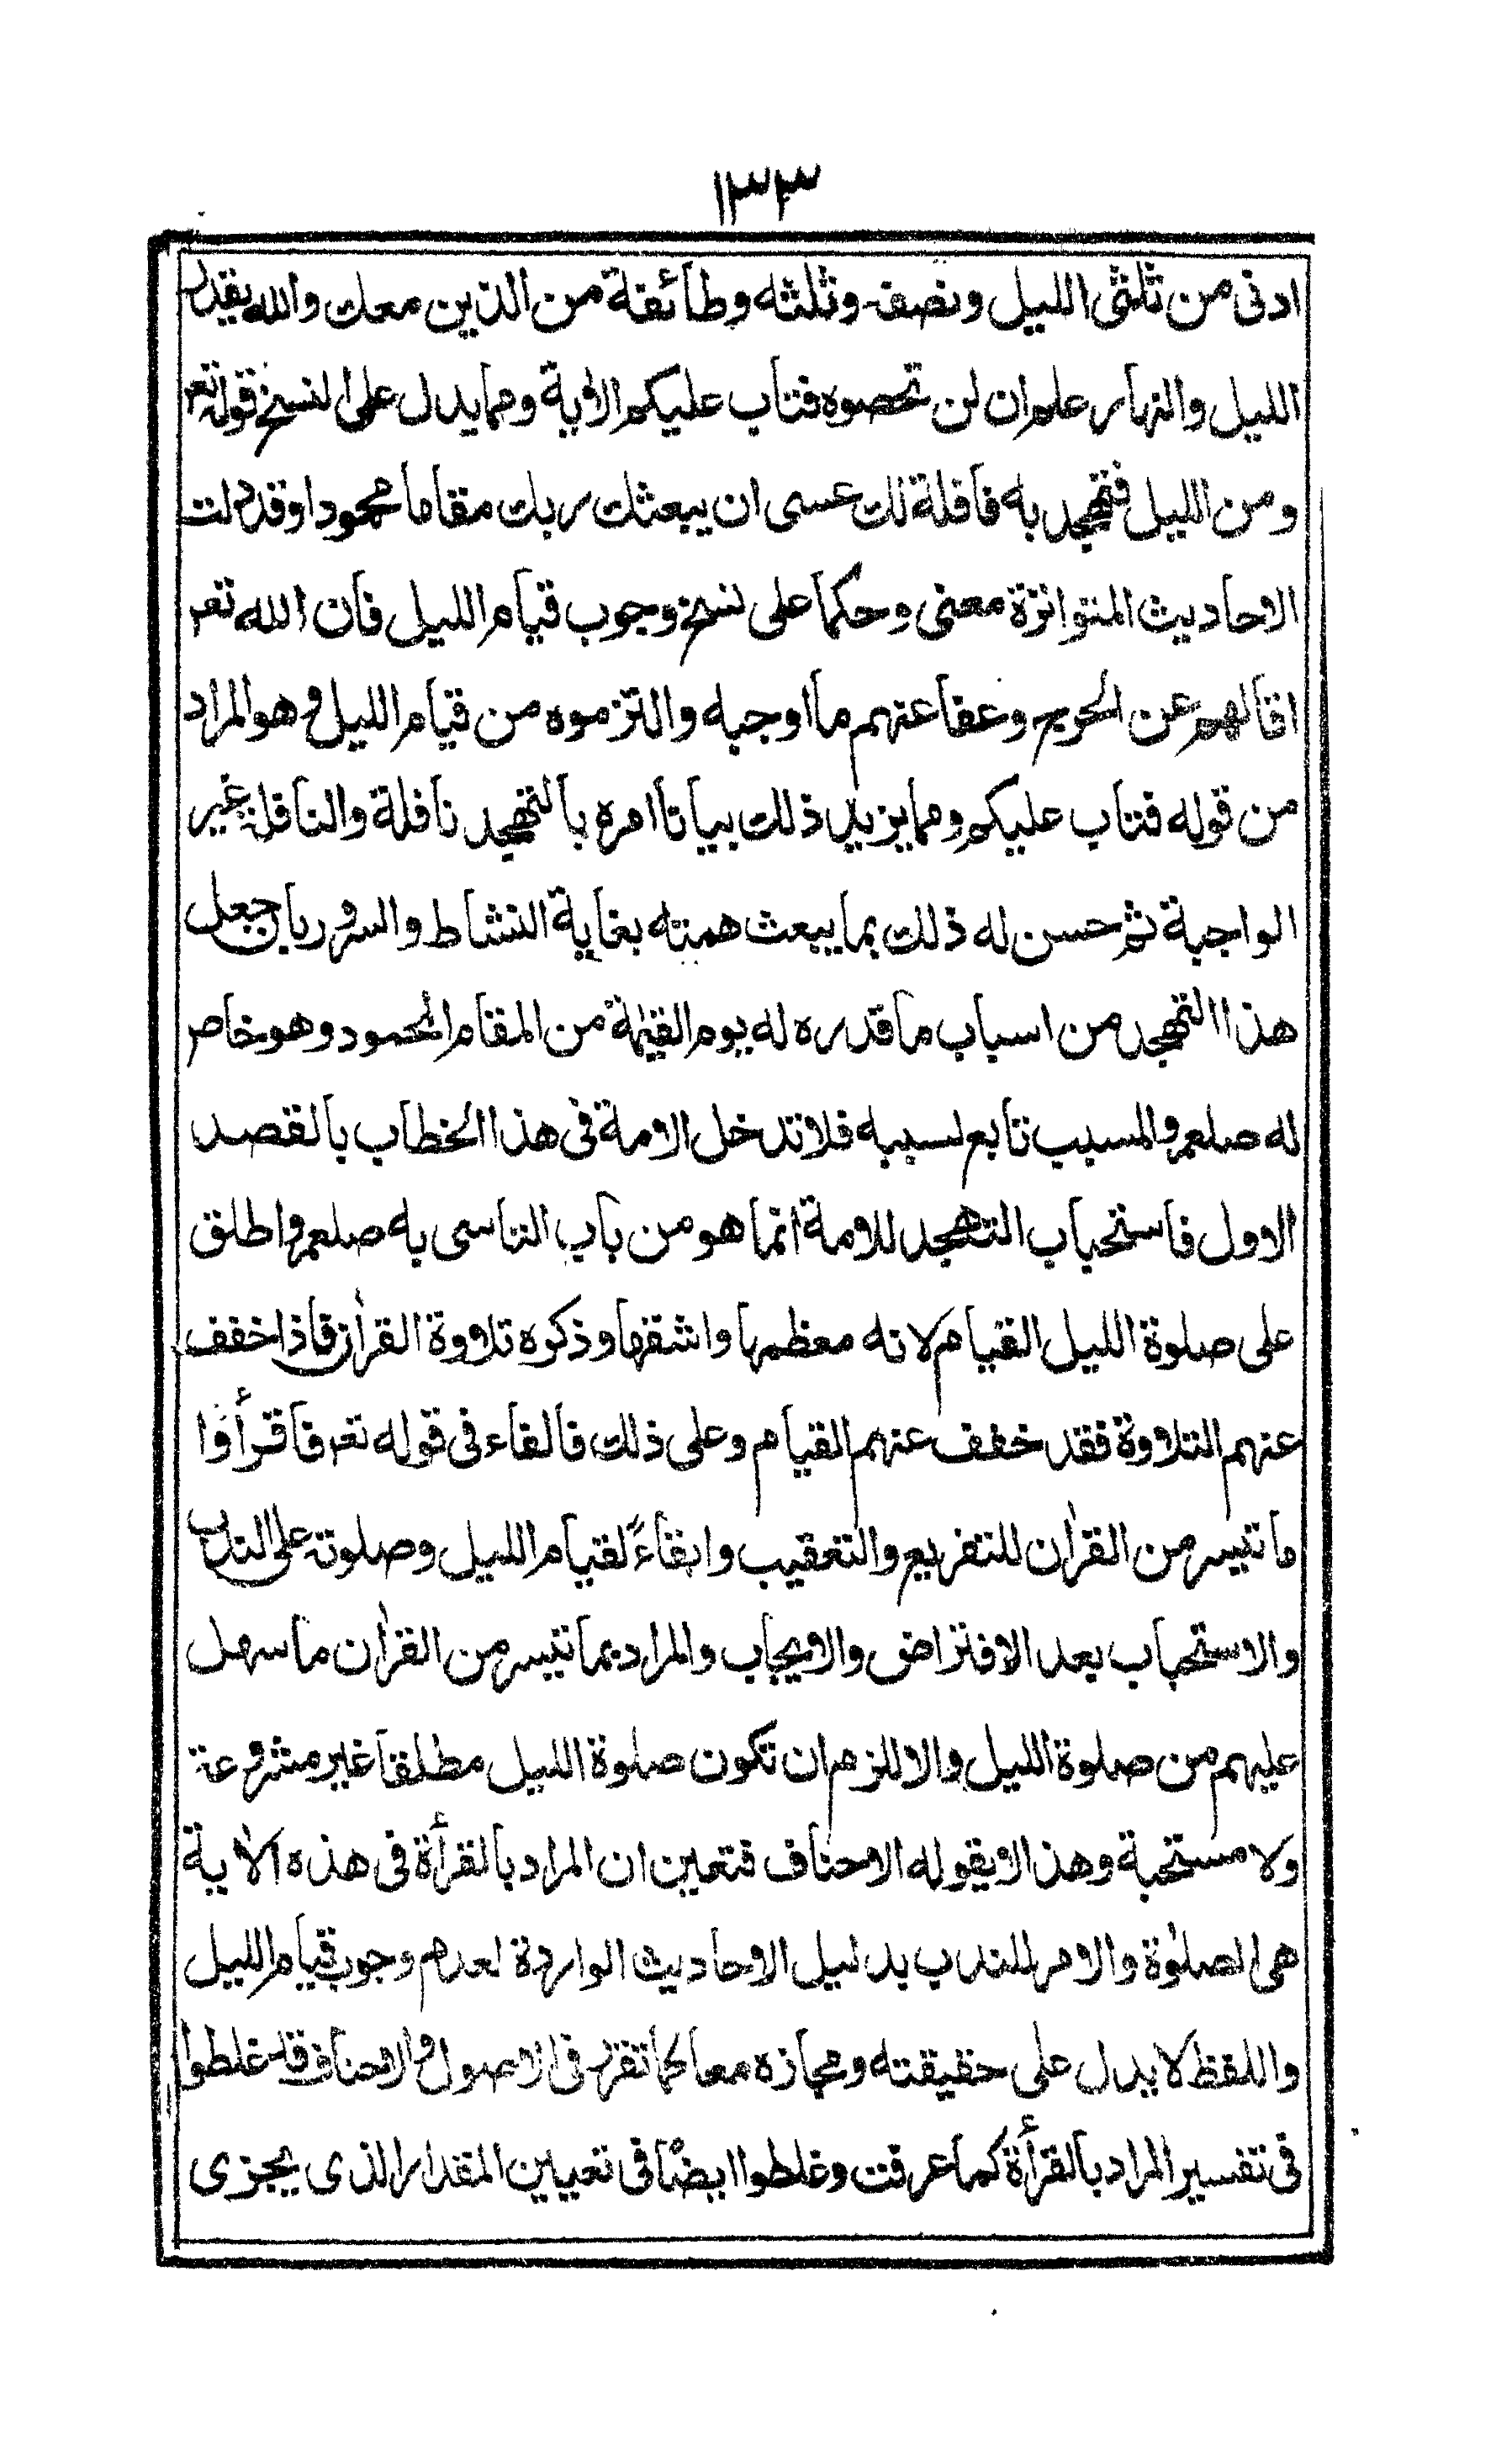 ١٣٣
ادنى من ثلثى الليل ونصفه وثلثه وطائفة من الذين معك والله يقدر
الليل والنهار علم ان لن تحصوه فتاب عليكم الاية ومما يدل على النسخ قوله تعم
ومن الليل فتهجد به نافلة لك عسى ان يبعثك ربك مقاما محمودا وقد دلت
الاحاديث المتواترة معنى وحكما على نسخ وجوب قيام الليل فان الله تعم
اقالهم عن الحرج وعفا عنهم ما اوجبه والتزموه من قيام الليل وهو المراد
من قوله فتاب عليكم ومما يزيد ذلك بيانا امره بالتهجد نافلة والنافلة غير
الواجبة ثم حسن له ذلك بما يبعث همته بغاية النشاط والسرور بان جعل
هذا التهجد من اسباب ما قدره له يوم القيٰمة من المقام المحمود وهو خاص
له صلعم والمسبب تابع لسببه فلا تدخل الامة فى هذا الخطاب بالقصد
الاول فاستحباب التهجد للامة انما هو من باب التاسى به صلعم واطلق
على صلوة الليل القيام لانه معظمها واشقها وذكره تلاوة القراٰن فاذا خفف
عنهم التلاوة فقد خفف عنهم القيام وعلى ذلك فالفاء فى قوله تعم فاقرأوا
ما تيسر من القراٰن للتفريع والتعقيب وابقاءً لقيام الليل وصلوته على الندب
والاستحباب بعد الافتراض والايجاب والمراد بما تيسر من القراٰن ما سهل
عليهم من صلوة الليل والا للزم ان تكون صلوة الليل مطلقا غير مشروعة
ولا مستحبة وهذا لا يقوله الاحناف فتعين ان المراد بالقرأة فى هذه الاٰية
هى الصلوٰة والامر للندب بدليل الاحاديث الواردة لعدم وجوب قيام الليل
واللفظ لا يدل على حقيقته ومجازه معا كما تقرر فى الاصول والاحناف قد غلطوا
فى تفسير المراد بالقرأة كما عرفت وغلطوا ايضًا فى تعيين المقدار الذى يجزى